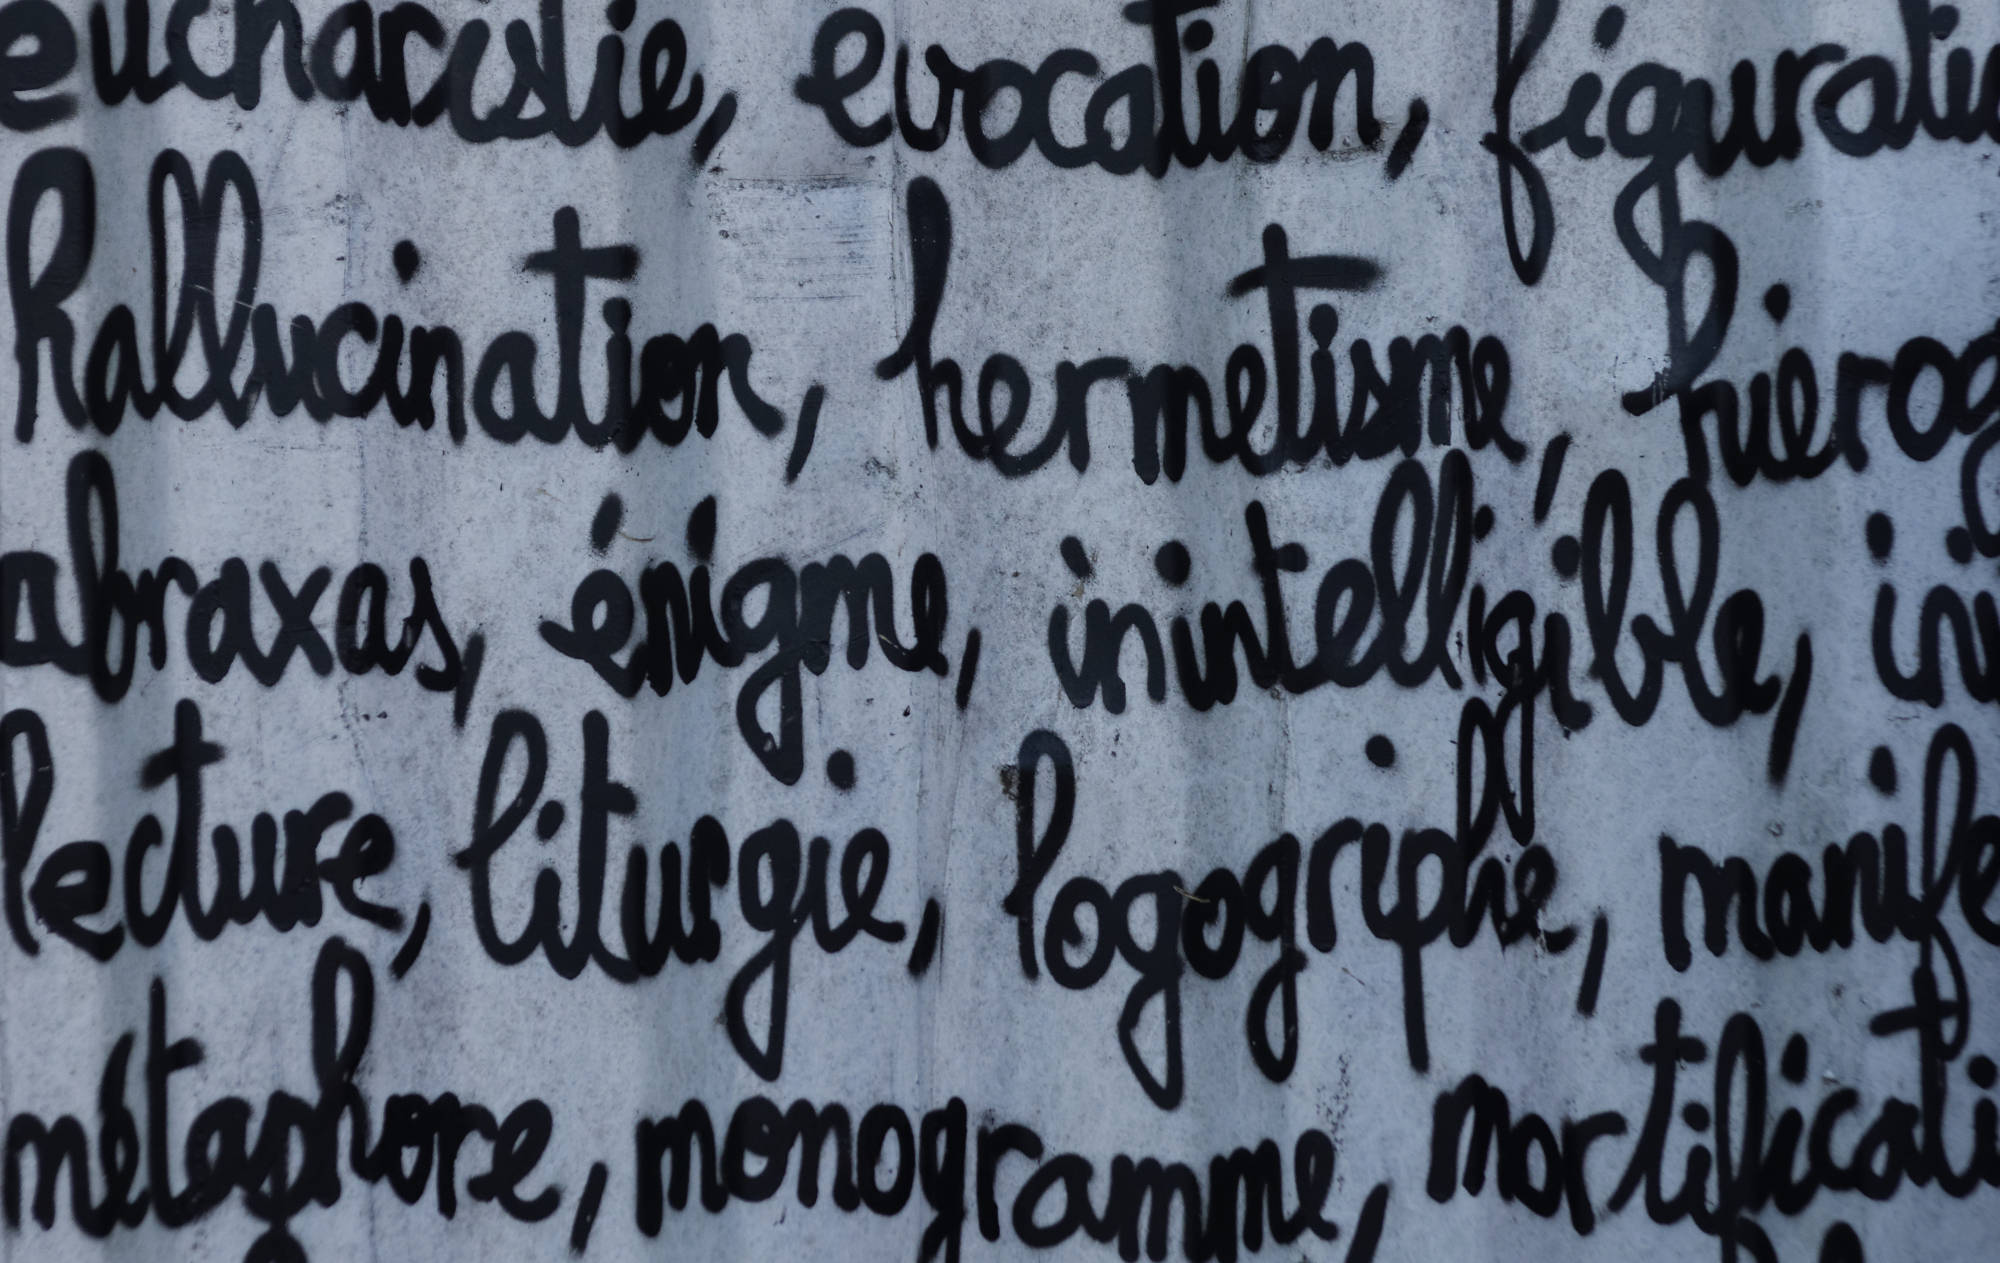 eucharistie, evocation, figuratio
hallucination, hermetisme, hierog
abraxas, énigme, inintelligible, ini
lecture, liturgie, logogriphe, manife
métaphore, monogramme, mortificati